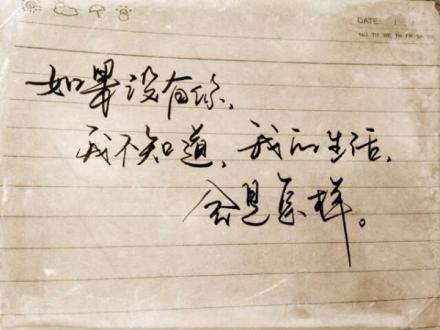 DATE / /
MO TU WE TH FR SA SU
如果没有你,
我不知道,我的生活,
会是怎样。